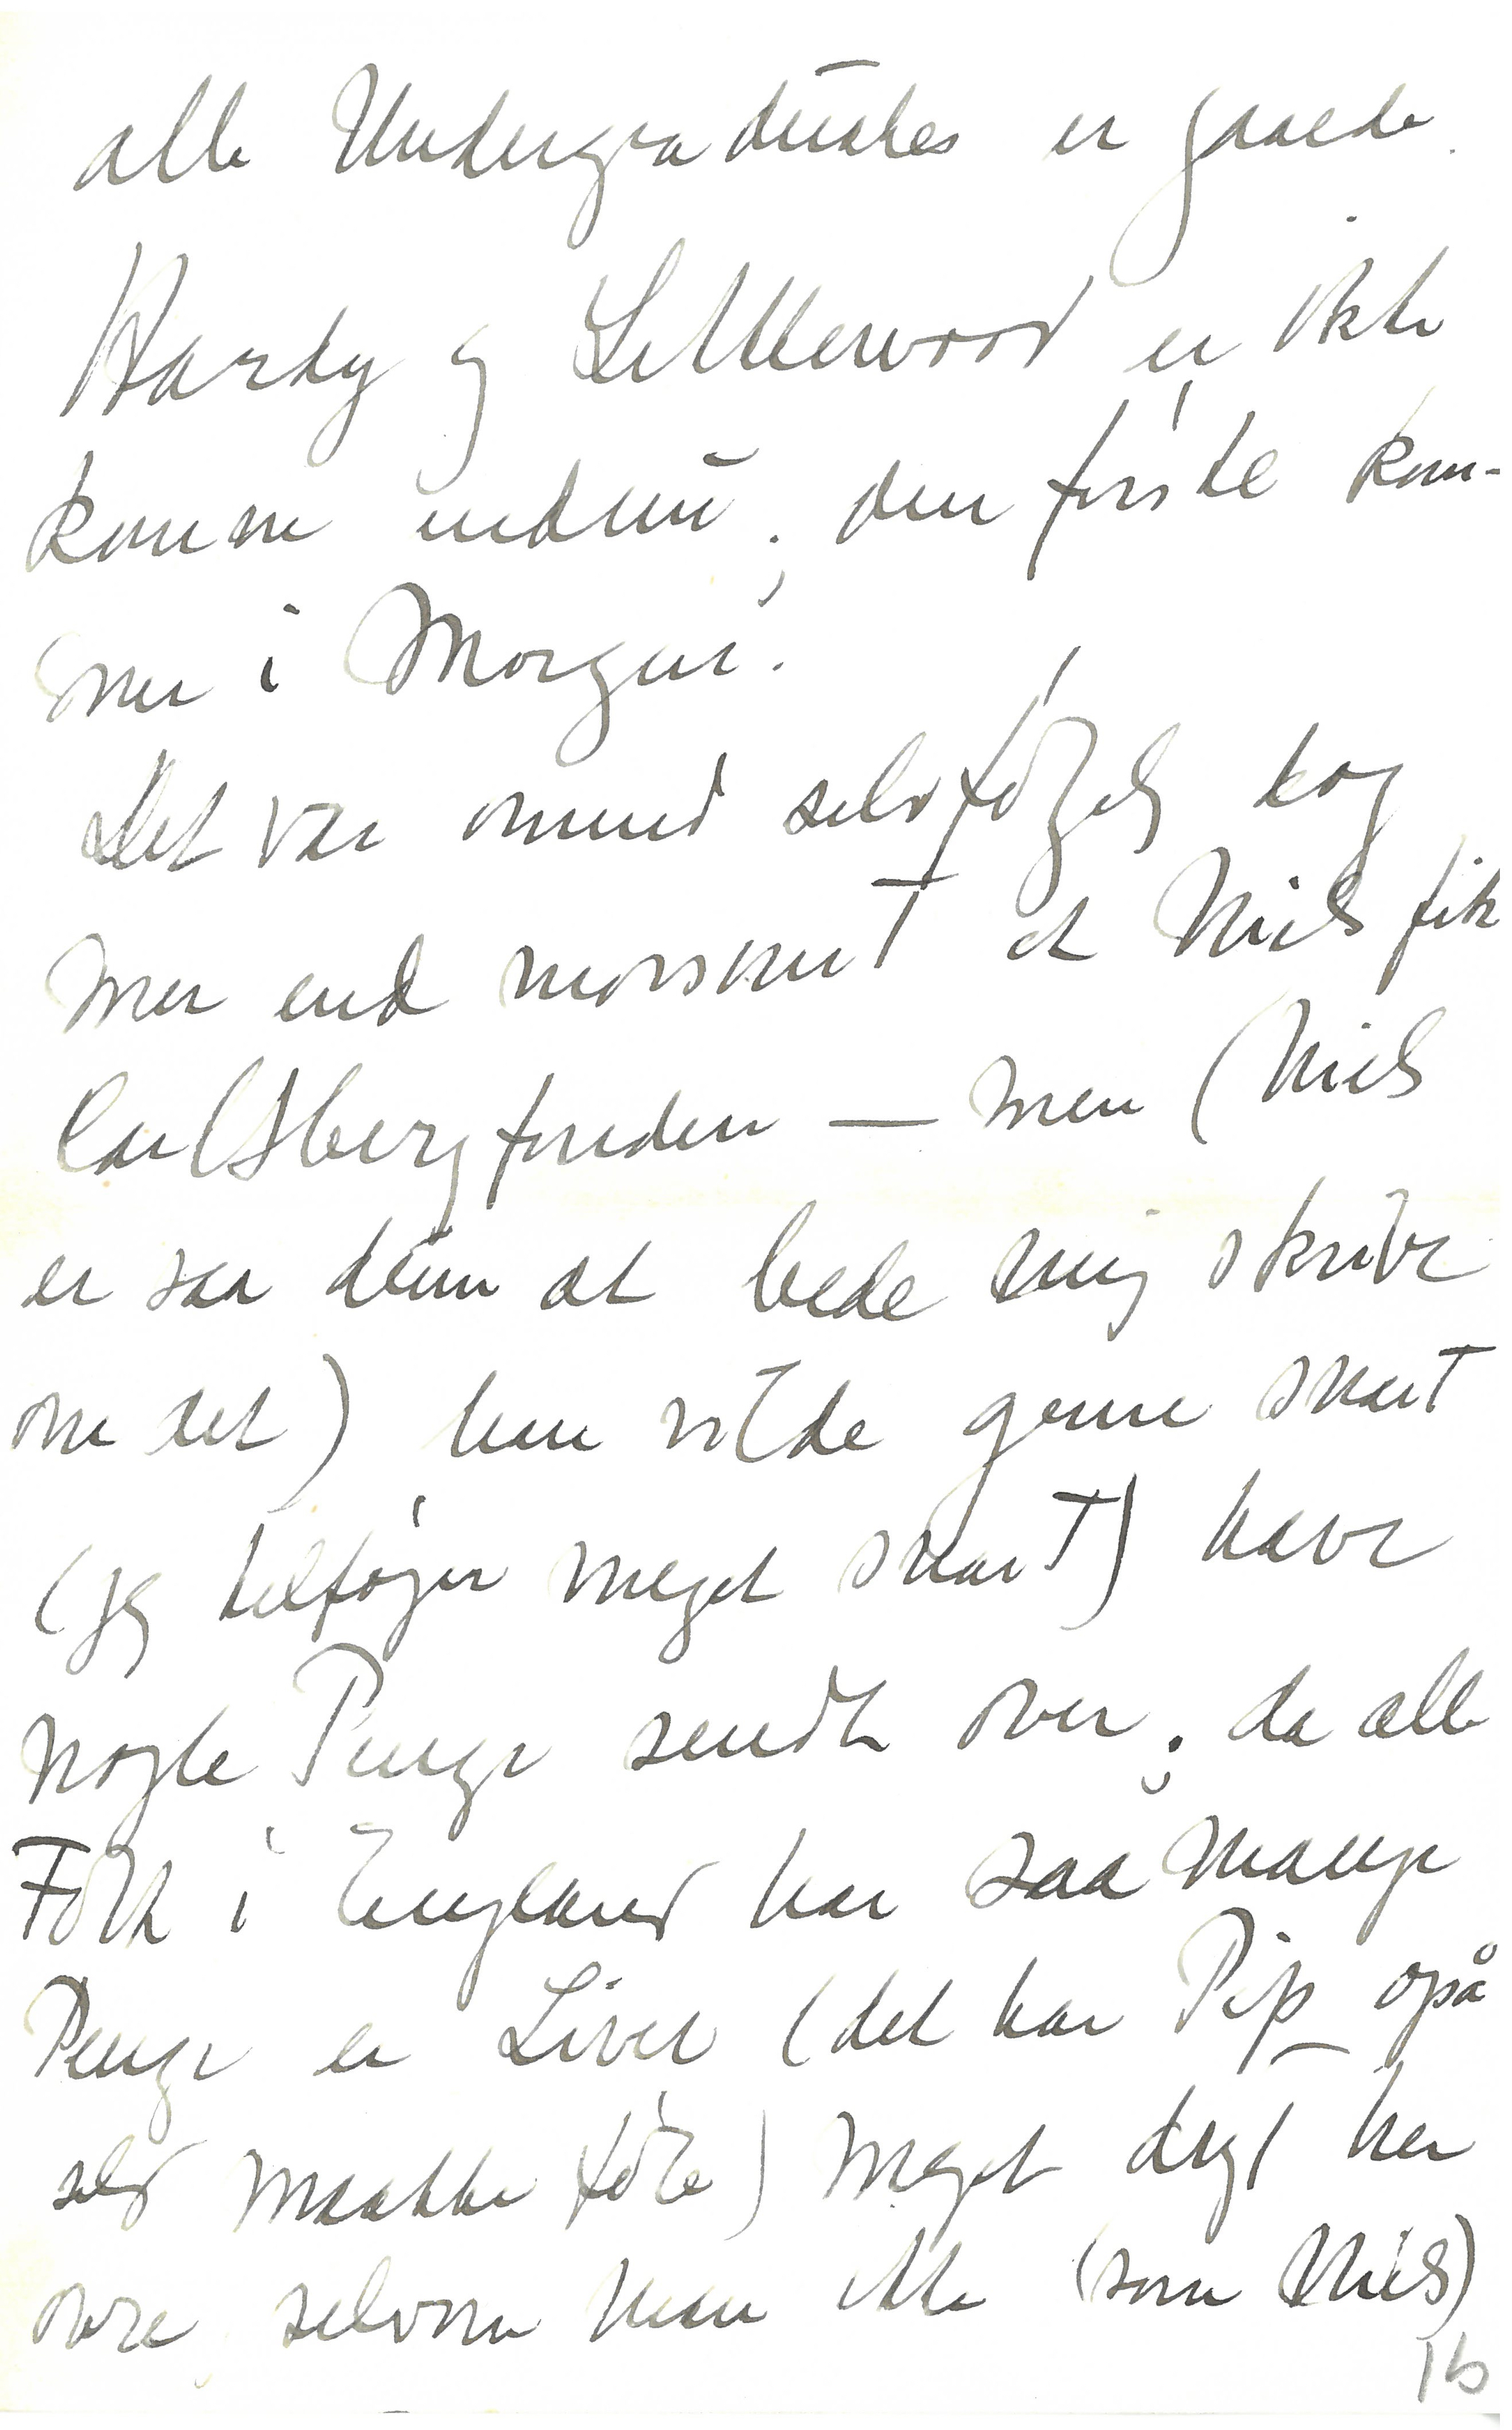 alle Undergraduates er gaaede.
Hardy og Littlewood er ikke
komne endnu; den første kom-
mer i Morgen.
Det var ommed selvfølgelig
mer end morsomt at Niels fik
Carlsbergfonden — men (Niels
er saa dum at bede mig skrive
om det) han vilde gerne snart
(jeg tilføjer meget snart) have
nogle Penge sendt over; da alle
Folk i England har saa mange
Penge er Livet (det har Pip også
selv maattet føle) meget dyrt her
ovre selvom man ikke (som Niels)
16